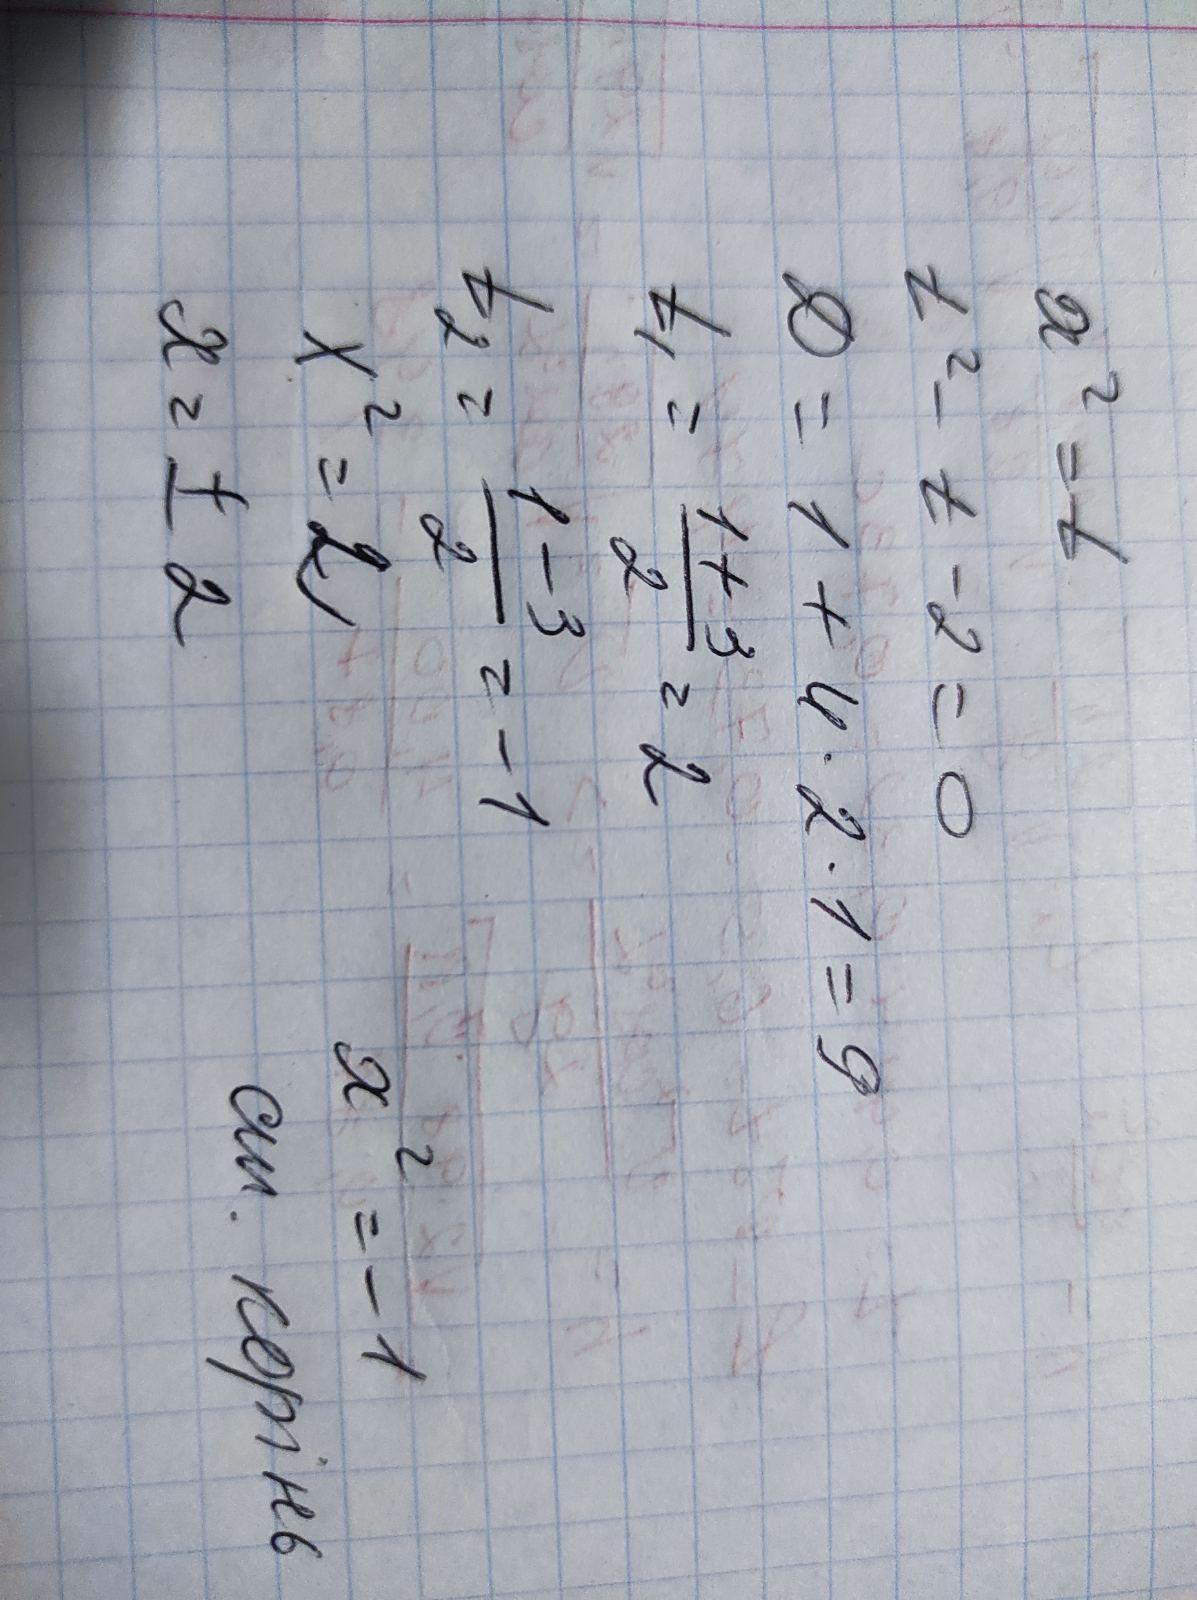 x² = t
t² - t - 2 = 0
D = 1 + 4 · 2 · 1 = 9
t₁ = (1+3)/2 = 2
t₂ = (1-3)/2 = -1
x² = 2
x² = -1
x = ± 2
корінь